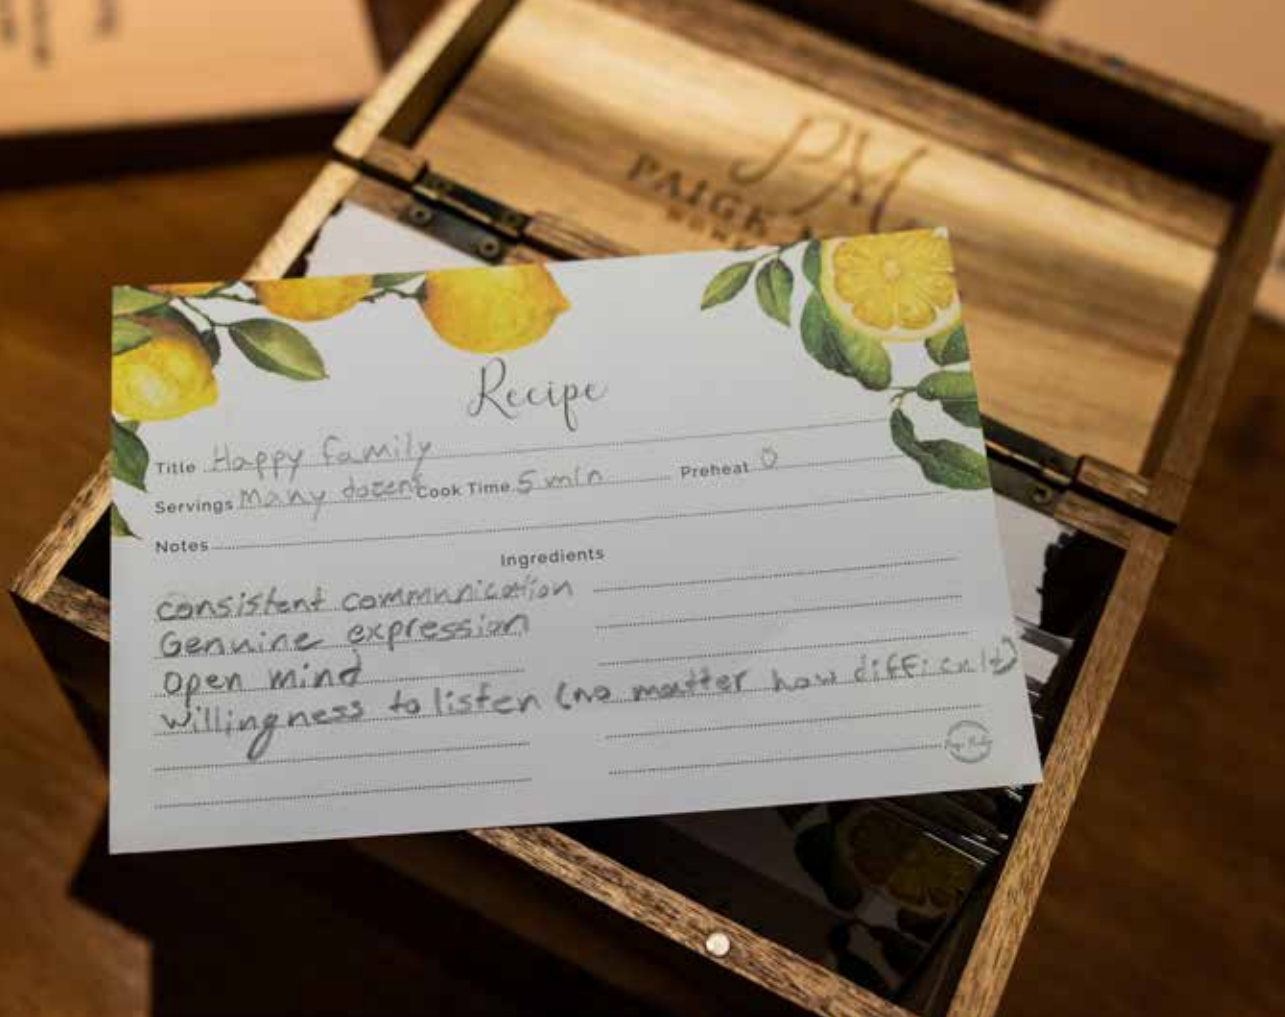 PM
PAIGE
Recipe
Title Happy family
Servings Many dozent Cook Time 5 min Preheat 0
Notes
Ingredients
consistent communication
Genuine expression
Open mind
willingness to listen (no matter how difficult)